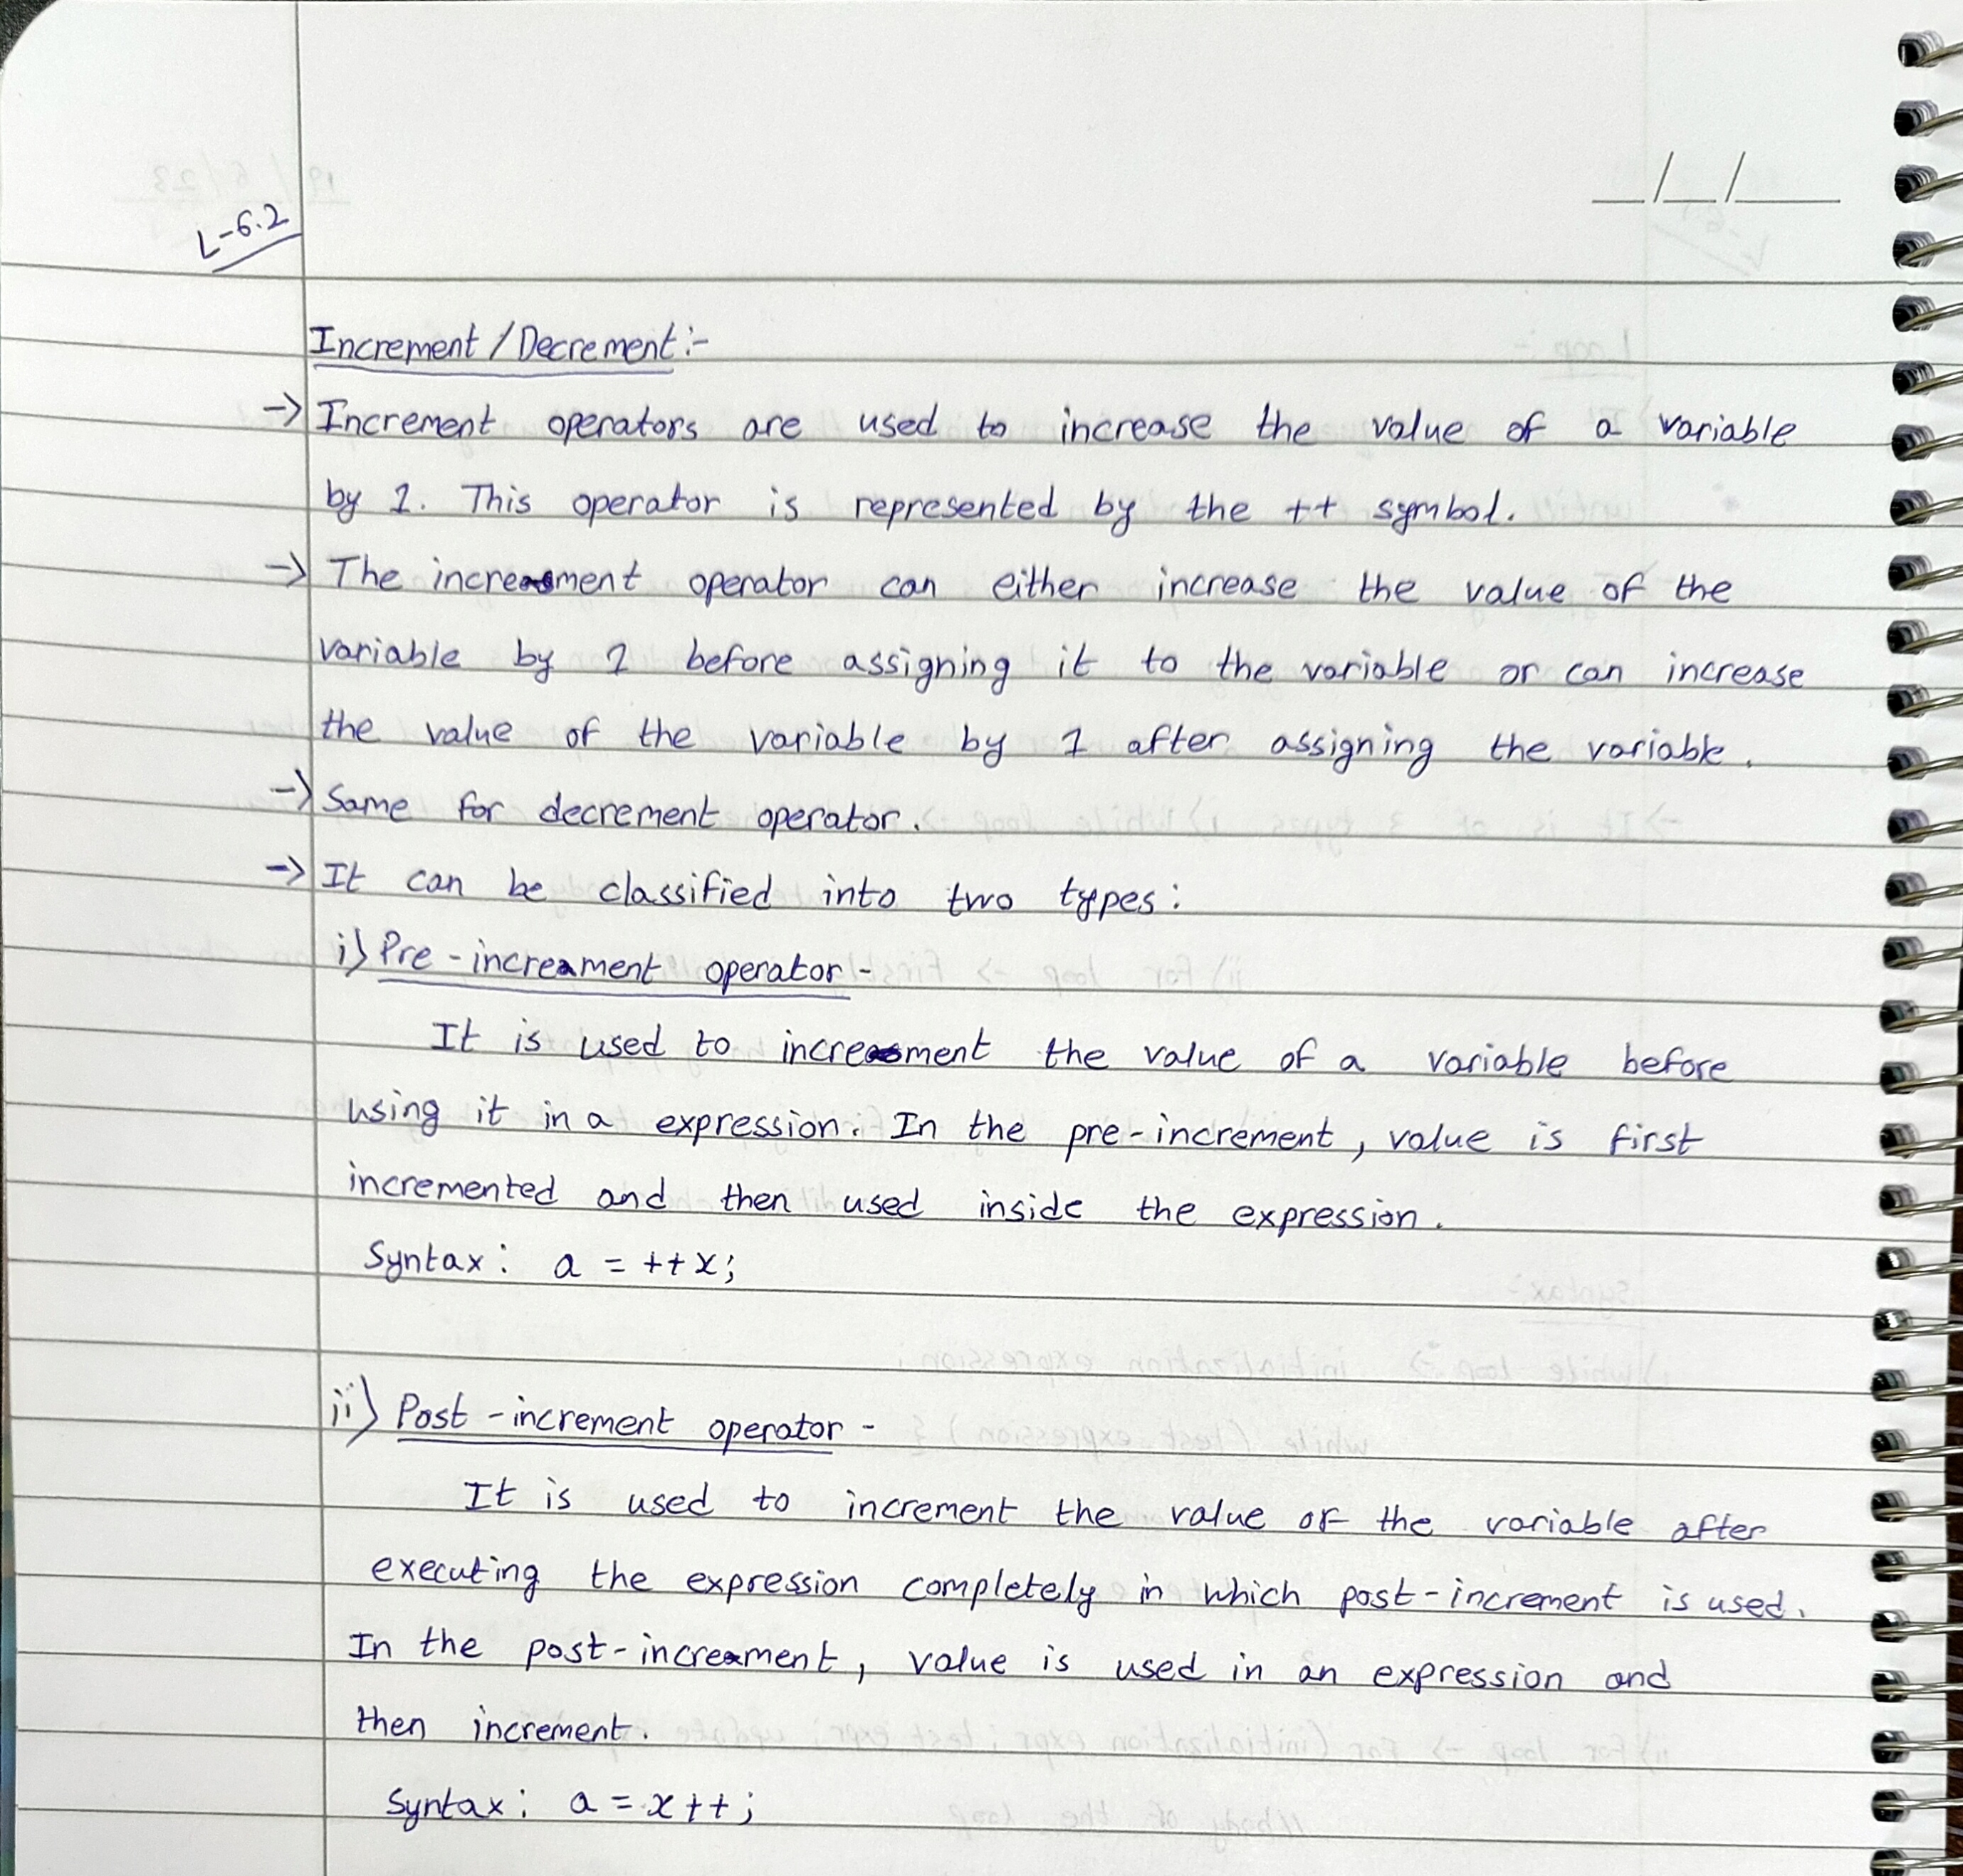 L-6.2
__/__/____
Increment / Decrement :-
-> Increment operators are used to increase the value of a variable
by 1. This operator is represented by the ++ symbol.
-> The increment operator can either increase the value of the
variable by 1 before assigning it to the variable or can increase
the value of the variable by 1 after assigning the variable.
-> Same for decrement operator.
-> It can be classified into two types:
i) Pre-increament operator -
It is used to increment the value of a variable before
using it in a expression. In the pre-increment, value is first
incremented and then used inside the expression.
Syntax: a = ++x;
ii) Post-increment operator -
It is used to increment the value of the variable after
executing the expression completely in which post-increment is used.
In the post-increament, value is used in an expression and
then increment.
Syntax: a = x++;